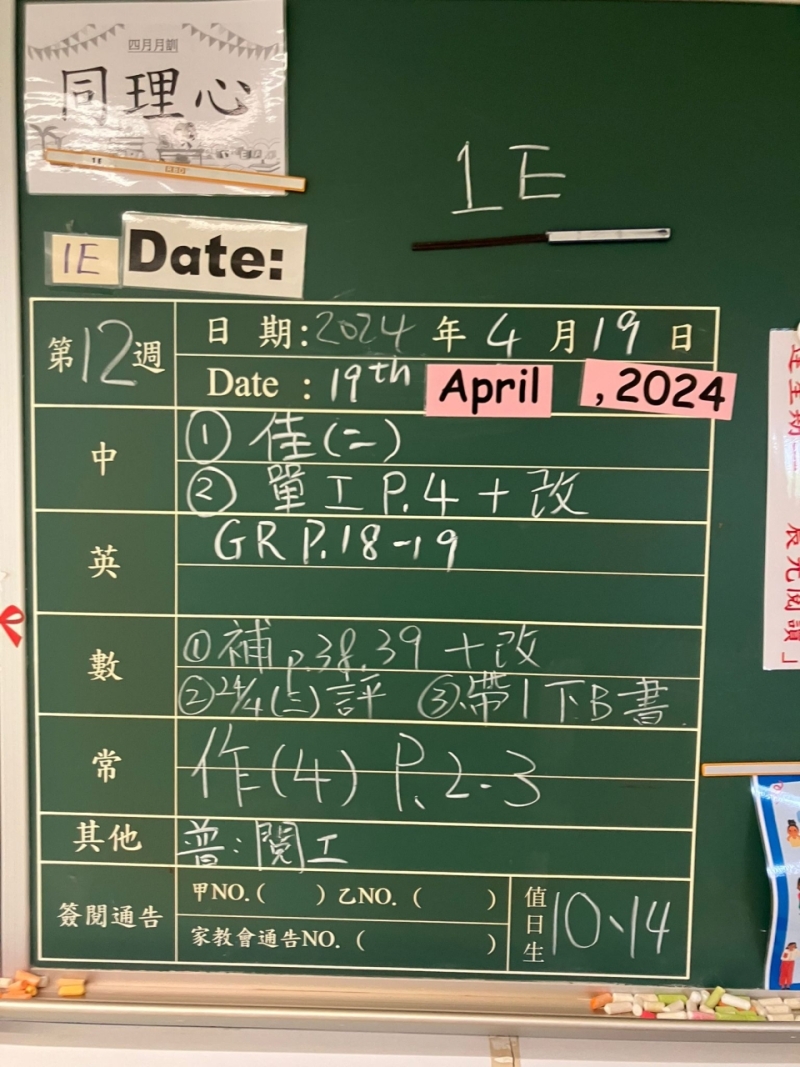 四月月訓
同理心
1E
1E Date:
第12週
日 期:2024年4月19日
Date : 19th April , 2024
中
① 佳(二)
② 單工 P.4 + 改
英
GR P.18-19
數
① 補 P.38.39 + 改
② 24/4(三)評 ③帶1下B書
常
作(4) P.2-3
其他
普:閱工
簽閱通告
甲NO.( ) 乙NO.( )
家教會通告NO.( )
值日生
10、14
晨光閱讀」